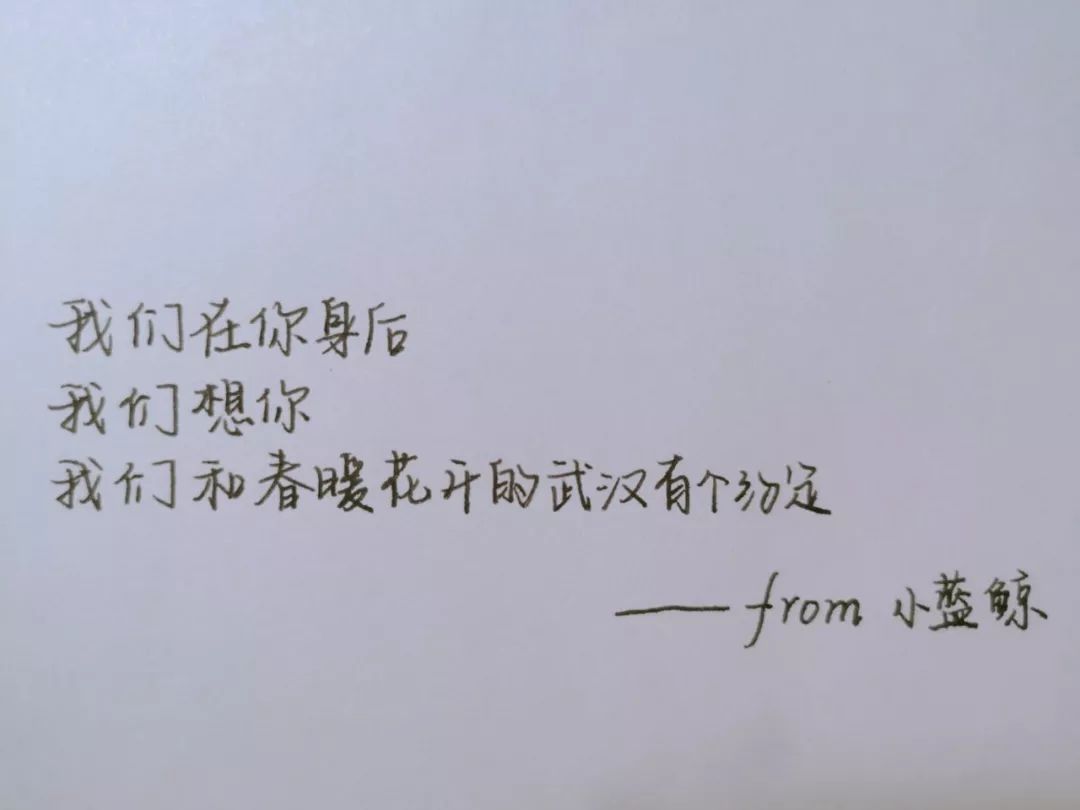 我们在你身后
我们想你
我们和春暖花开的武汉有个约定
——from 小蓝鲸